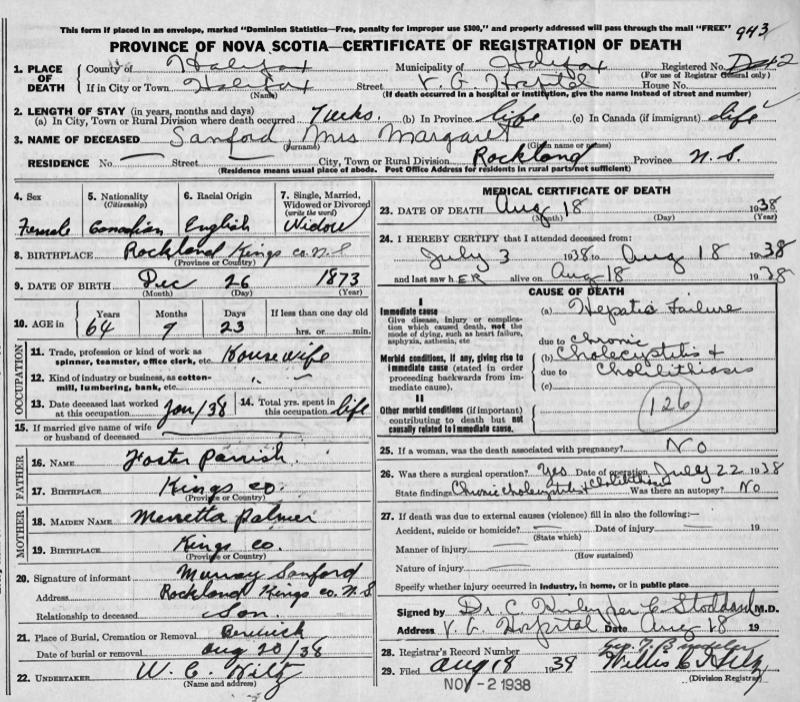 This form if placed in an envelope, marked "Dominion Statistics—Free, penalty for improper use $300," and properly addressed will pass through the mail "FREE"
943
PROVINCE OF NOVA SCOTIA—CERTIFICATE OF REGISTRATION OF DEATH
1. PLACE OF DEATH
County of Halifax Municipality of Halifax Registered No.
(For use of Registrar General only)
If in City or Town Halifax Street V. G. Hospital House No.
(Name) (If death occurred in a hospital or institution, give the name instead of street and number)
2. LENGTH OF STAY (in years, months and days)
(a) In City, Town or Rural Division where death occurred 7 wks. (b) In Province life (c) In Canada (if immigrant) life
3. NAME OF DECEASED Sanford, Mrs Margaret
(Surname) (Given name or names)
RESIDENCE No. — Street — City, Town or Rural Division Rockland Province N. S.
(Residence means usual place of abode. Post Office Address for residents in rural parts not sufficient)
4. Sex Female
5. Nationality (Citizenship) Canadian
6. Racial Origin English
7. Single, Married, Widowed or Divorced (write the word) Widow
8. BIRTHPLACE Rockland Kings co. N S
(Province or Country)
9. DATE OF BIRTH Dec 26 1873
(Month) (Day) (Year)
10. AGE in Years 64 Months 7 Days 23 If less than one day old
hrs. or min.
OCCUPATION
11. Trade, profession or kind of work as spinner, teamster, office clerk, etc. Housewife
12. Kind of industry or business, as cotton-mill, lumbering, bank, etc. " - "
13. Date deceased last worked at this occupation Jan/38
14. Total yrs. spent in this occupation life
15. If married give name of wife or husband of deceased
FATHER
16. NAME Foster Parrish
17. BIRTHPLACE Kings co.
(Province or Country)
MOTHER
18. MAIDEN NAME Merretta Palmer
19. BIRTHPLACE Kings co.
(Province or Country)
20. Signature of informant Murray Sanford
Address Rockland Kings co. N. S
Relationship to deceased Son
21. Place of Burial, Cremation or Removal Berwick
Date of burial or removal Aug 20/38
22. UNDERTAKER W. C. Hiltz
(Name and address)
MEDICAL CERTIFICATE OF DEATH
23. DATE OF DEATH Aug 18 1938
(Month) (Day) (Year)
24. I HEREBY CERTIFY that I attended deceased from:
July 3 1938 to Aug 18 1938
and last saw h ER alive on Aug 18 1938
CAUSE OF DEATH
I
Immediate cause
Give disease, injury or complication which caused death, not the mode of dying, such as heart failure, asphyxia, asthenia, etc
(a) Hepatic Failure
due to Chronic
Morbid conditions, if any, giving rise to immediate cause (stated in order proceeding backwards from immediate cause).
(b) Cholecystitis +
due to Cholelithiasis
(c)
II
Other morbid conditions (if important) contributing to death but not causally related to immediate cause.
126
25. If a woman, was the death associated with pregnancy? No
26. Was there a surgical operation? Yes Date of operation July 22 1938
State findings Chronic cholecystitis + cholelithiasis Was there an autopsy? No
27. If death was due to external causes (violence) fill in also the following:—
Accident, suicide or homicide? Date of injury 19
(State which)
Manner of injury
(How sustained)
Nature of injury
Specify whether injury occurred in industry, in home, or in public place
Signed by Dr. C. Stoddard M.D.
Address V. G. Hospital Date Aug 18 19
28. Registrar's Record Number
29. Filed Aug 18 1938 Willis C Hiltz
(Division Registrar)
NOV -2 1938